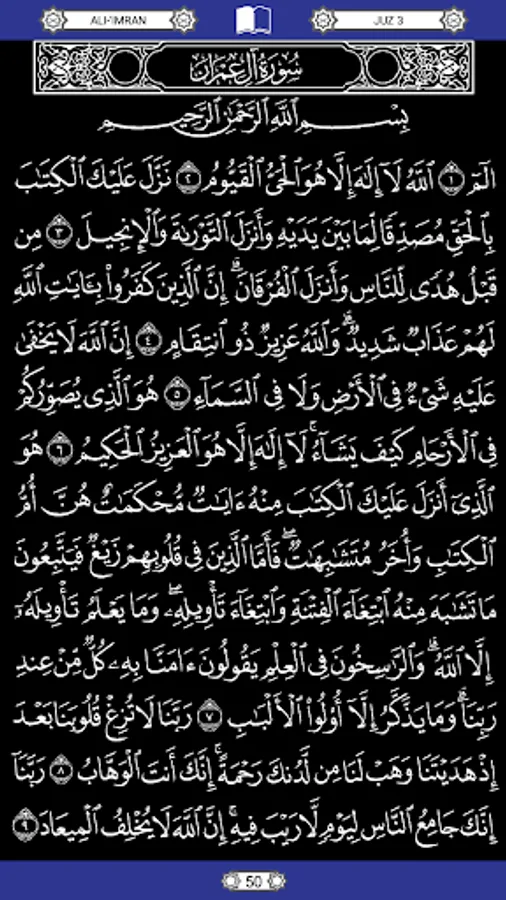 ALI-'IMRAN JUZ 3
سُورَةُ آلِ عِمْرَانَ
بِسْمِ ٱللَّهِ ٱلرَّحْمَٰنِ ٱلرَّحِيمِ
الٓمٓ ١ ٱللَّهُ لَآ إِلَٰهَ إِلَّا هُوَ ٱلْحَىُّ ٱلْقَيُّومُ ٢ نَزَّلَ عَلَيْكَ ٱلْكِتَٰبَ
بِٱلْحَقِّ مُصَدِّقًا لِّمَا بَيْنَ يَدَيْهِ وَأَنزَلَ ٱلتَّوْرَىٰةَ وَٱلْإِنجِيلَ ٣ مِن
قَبْلُ هُدًى لِّلنَّاسِ وَأَنزَلَ ٱلْفُرْقَانَ ۗ إِنَّ ٱلَّذِينَ كَفَرُوا۟ بِـَٔايَٰتِ ٱللَّهِ
لَهُمْ عَذَابٌ شَدِيدٌ ۗ وَٱللَّهُ عَزِيزٌ ذُو ٱنتِقَامٍ ٤ إِنَّ ٱللَّهَ لَا يَخْفَىٰ
عَلَيْهِ شَىْءٌ فِى ٱلْأَرْضِ وَلَا فِى ٱلسَّمَآءِ ٥ هُوَ ٱلَّذِى يُصَوِّرُكُمْ
فِى ٱلْأَرْحَامِ كَيْفَ يَشَآءُ ۚ لَآ إِلَٰهَ إِلَّا هُوَ ٱلْعَزِيزُ ٱلْحَكِيمُ ٦ هُوَ
ٱلَّذِىٓ أَنزَلَ عَلَيْكَ ٱلْكِتَٰبَ مِنْهُ ءَايَٰتٌ مُّحْكَمَٰتٌ هُنَّ أُمُّ
ٱلْكِتَٰبِ وَأُخَرُ مُتَشَٰبِهَٰتٌ ۖ فَأَمَّا ٱلَّذِينَ فِى قُلُوبِهِمْ زَيْغٌ فَيَتَّبِعُونَ
مَا تَشَٰبَهَ مِنْهُ ٱبْتِغَآءَ ٱلْفِتْنَةِ وَٱبْتِغَآءَ تَأْوِيلِهِۦ ۗ وَمَا يَعْلَمُ تَأْوِيلَهُۥٓ
إِلَّا ٱللَّهُ ۗ وَٱلرَّٰسِخُونَ فِى ٱلْعِلْمِ يَقُولُونَ ءَامَنَّا بِهِۦ كُلٌّ مِّنْ عِندِ
رَبِّنَا ۗ وَمَا يَذَّكَّرُ إِلَّآ أُو۟لُوا۟ ٱلْأَلْبَٰبِ ٧ رَبَّنَا لَا تُزِغْ قُلُوبَنَا بَعْدَ
إِذْ هَدَيْتَنَا وَهَبْ لَنَا مِن لَّدُنكَ رَحْمَةً ۚ إِنَّكَ أَنتَ ٱلْوَهَّابُ ٨ رَبَّنَآ
إِنَّكَ جَامِعُ ٱلنَّاسِ لِيَوْمٍ لَّا رَيْبَ فِيهِ ۚ إِنَّ ٱللَّهَ لَا يُخْلِفُ ٱلْمِيعَادَ ٩
50